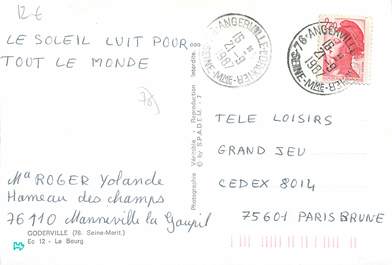 12€
LE SOLEIL LUIT POUR
TOUT LE MONDE
76
Ma ROGER Yolande
Hameau des champs
76110 Manneville la Goupil
GODERVILLE (76. Seine-Marit.)
Ec 12 - Le Bourg
Photographie Véritable - Reproduction Interdite
© by S.P.A.D.E.M. - 7
76-ANGERVILLE-L'ORCHER
15 H
21-9
1987
SEINE-MME
76-ANGERVILLE
15 H
21-9
1987
SEINE-MME
TELE LOISIRS
GRAND JEU
CEDEX 8014
75601 PARIS BRUNE